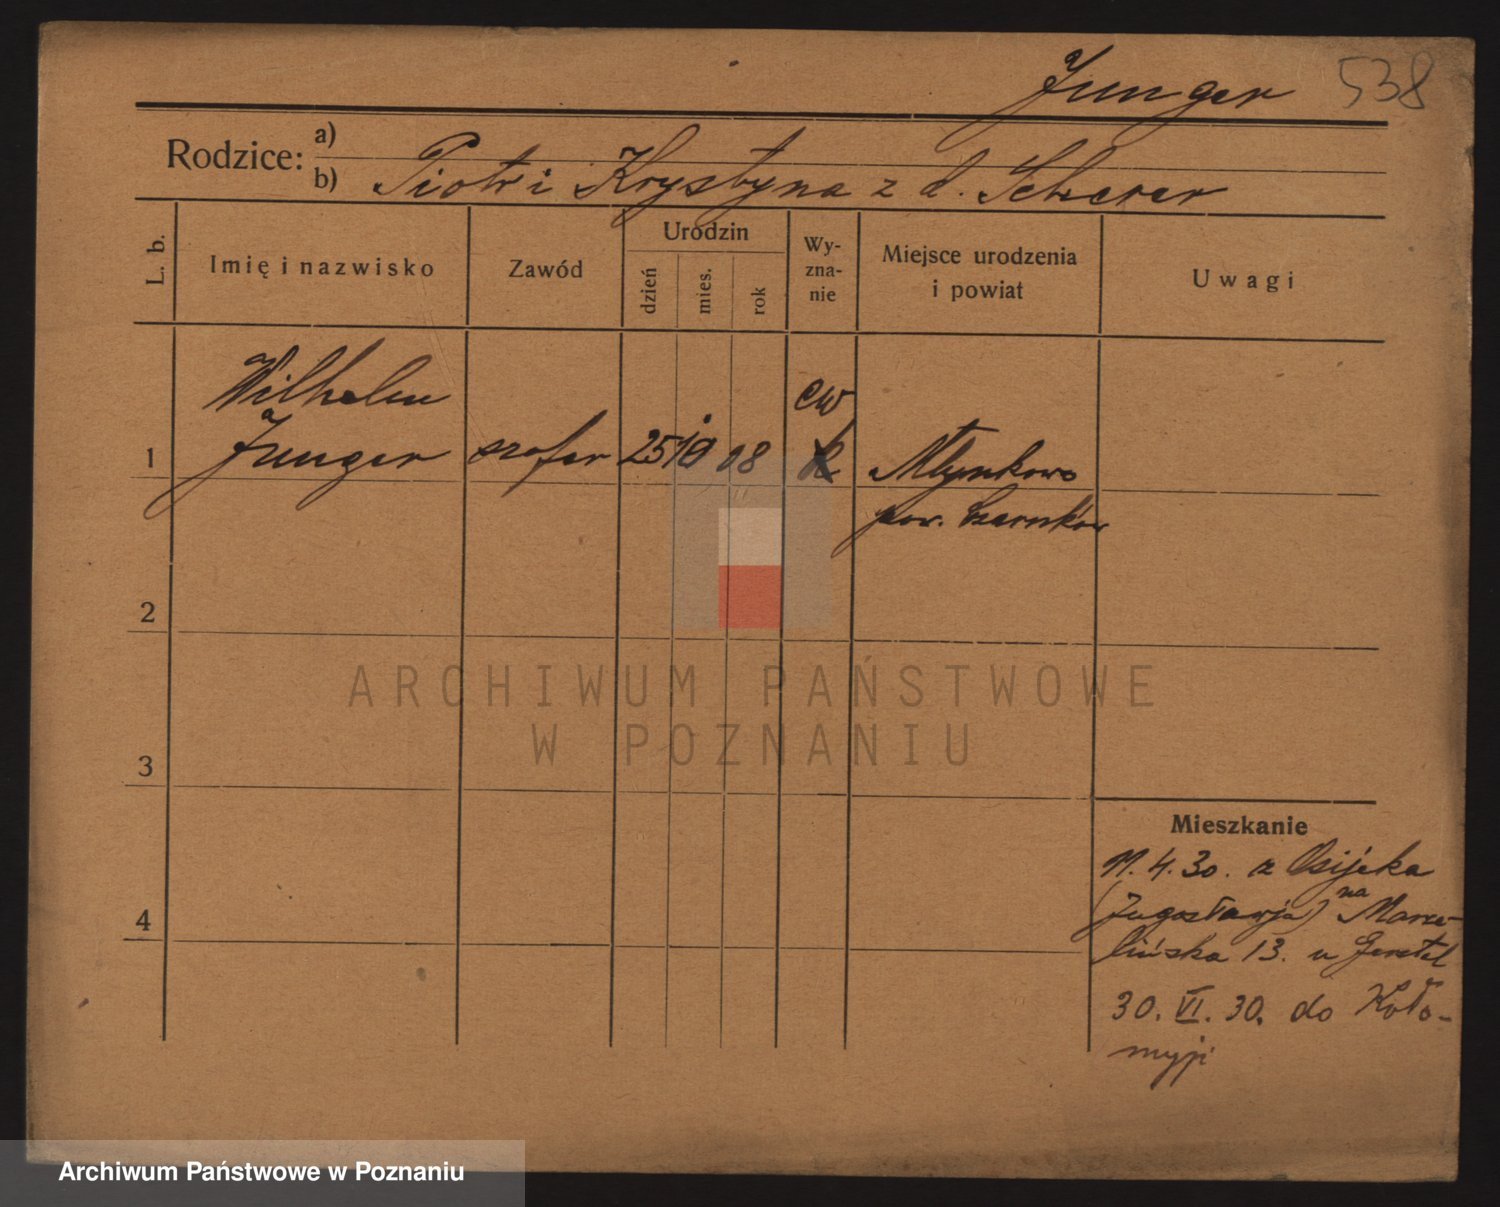 Junger 538
Rodzice: a)
b) Piotr i Krystyna z d. Scherer
L. b. Imię i nazwisko Zawód Urodzin dzień mies. rok Wy-zna-nie Miejsce urodzenia i powiat Uwagi
Wilhelm ew
1 Junger szofer 25 10 08 k Młynkowo
pow. Czarnków
2
ARCHIWUM PAŃSTWOWE
W POZNANIU
3
Mieszkanie
11.4.30. z Osijeka
(Jugosławja) na Marce-
4
lińska 13. u Gerstel
30. VI. 30. do Koło-
myji
Archiwum Państwowe w Poznaniu